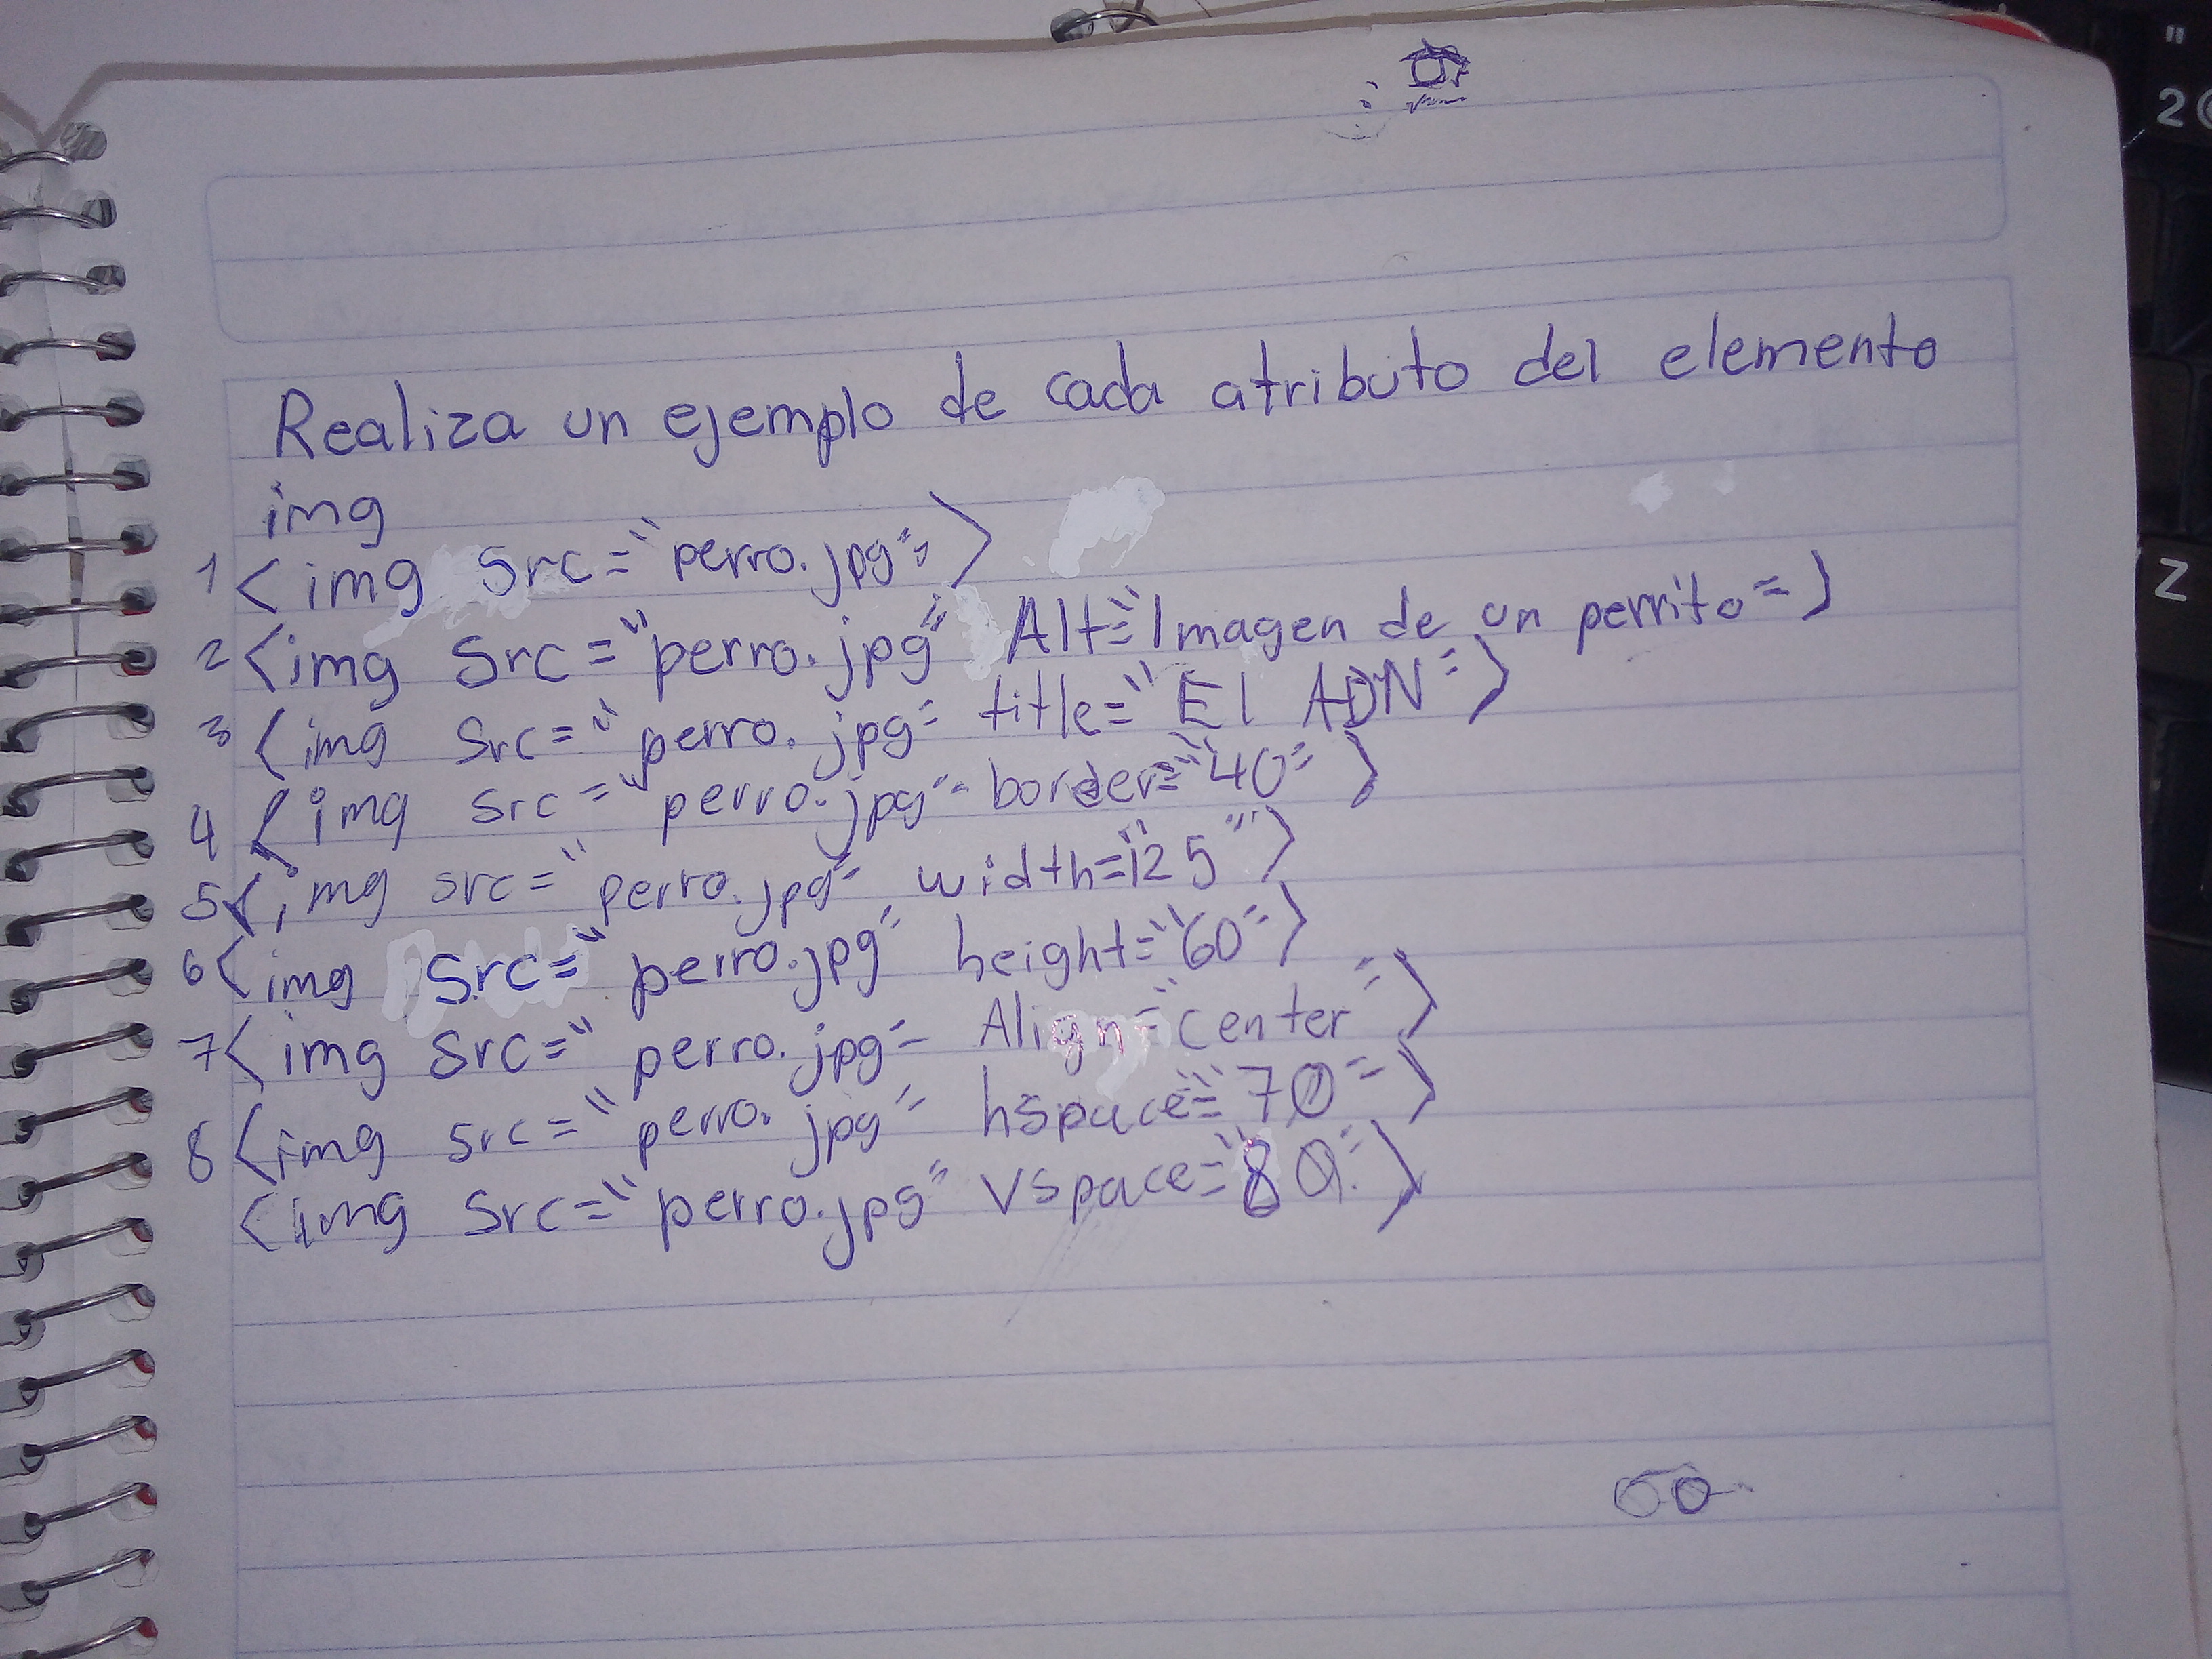 Realiza un ejemplo de cada atributo del elemento
img
1 <img src="perro.jpg">
2 <img src="perro.jpg" Alt="Imagen de un perrito">
3 <img src="perro.jpg" title="El ADN">
4 <img src="perro.jpg" border="40">
5 <img src="perro.jpg" width="125">
6 <img src="perro.jpg" height="60">
7 <img src="perro.jpg" Align="center">
8 <img src="perro.jpg" hspace="70">
<img src="perro.jpg" vspace="80">
2
Z